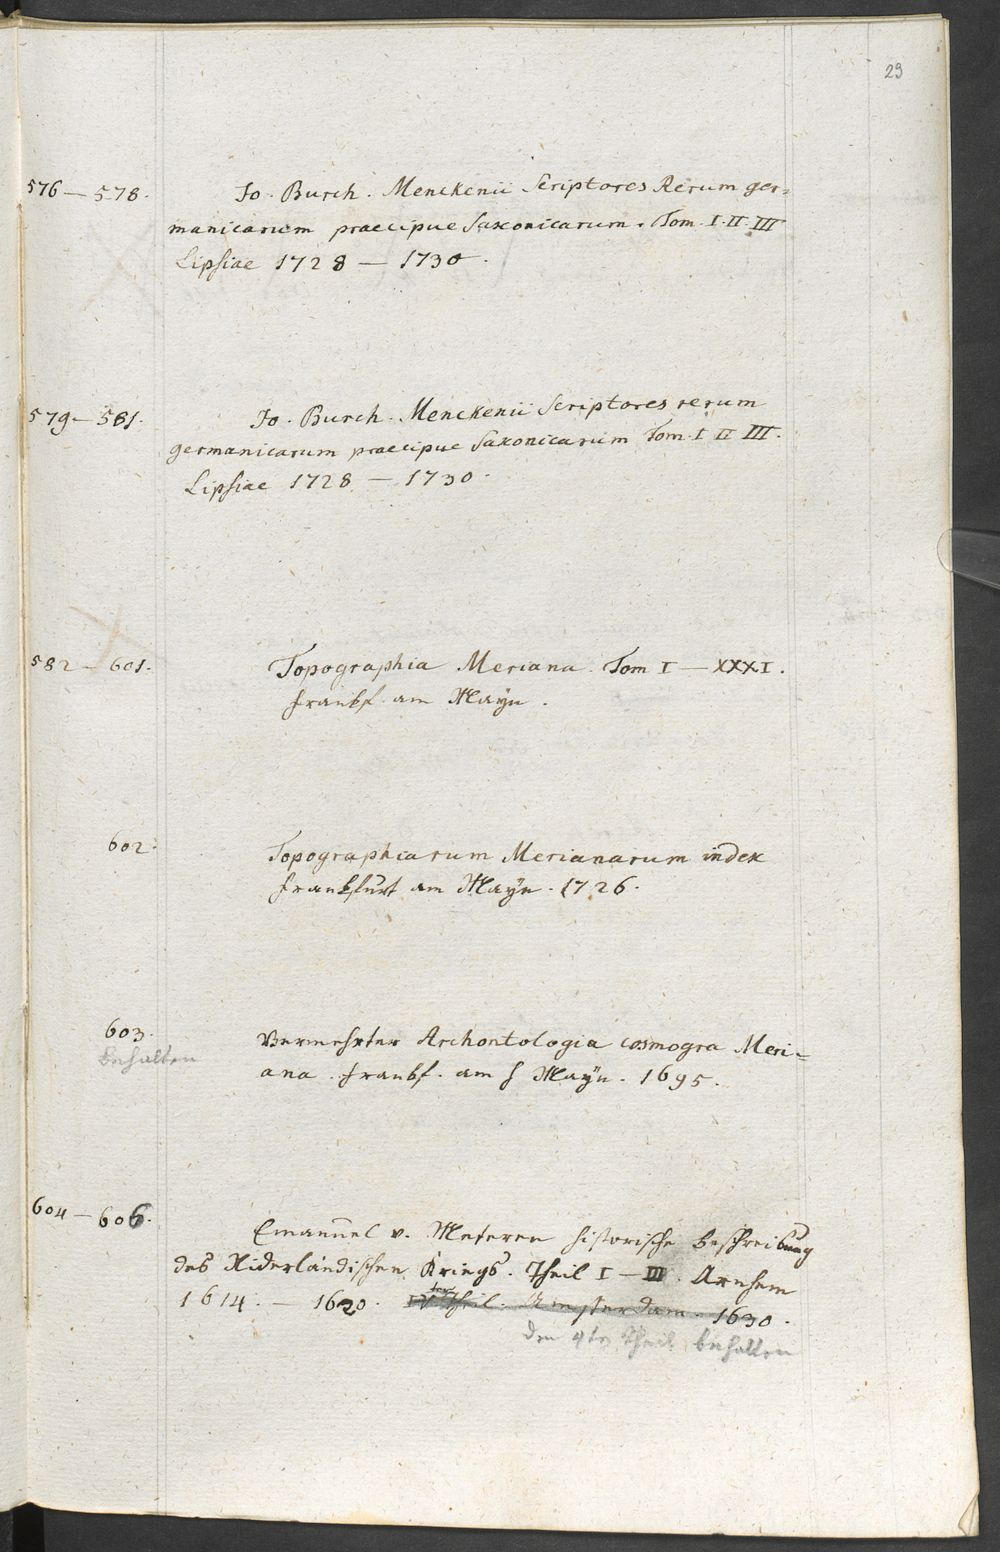 29
576 — 578. Jo. Burch. Menckenii Scriptores Rerum ger=
manicarum praecipue Saxonicarum. Tom. I. II. III
Lipsiae 1728 — 1730.
579 — 581. Jo. Burch. Menckenii Scriptores rerum
germanicarum praecipue Saxonicarum Tom. I II III.
Lipsiae 1728 — 1730.
582 — 601. Topographia Meriana. Tom I — XXXI.
Frankf. am Mayn.
602. Topographicarum Merianarum index
Frankfurt am Maÿn. 1726.
603. Vermehrter Archontologia cosmogra Meri=
behalten ana. Frankf. am Maÿn. 1695.
604 — 606. Emanuel v. Meteren historische beschreibung
des Niderländischen Kriegs. Theil I — III. Arnhem
1614. — 1620. IVter Theil. Amsterdam. 1630.
den 4ten Theil behalten